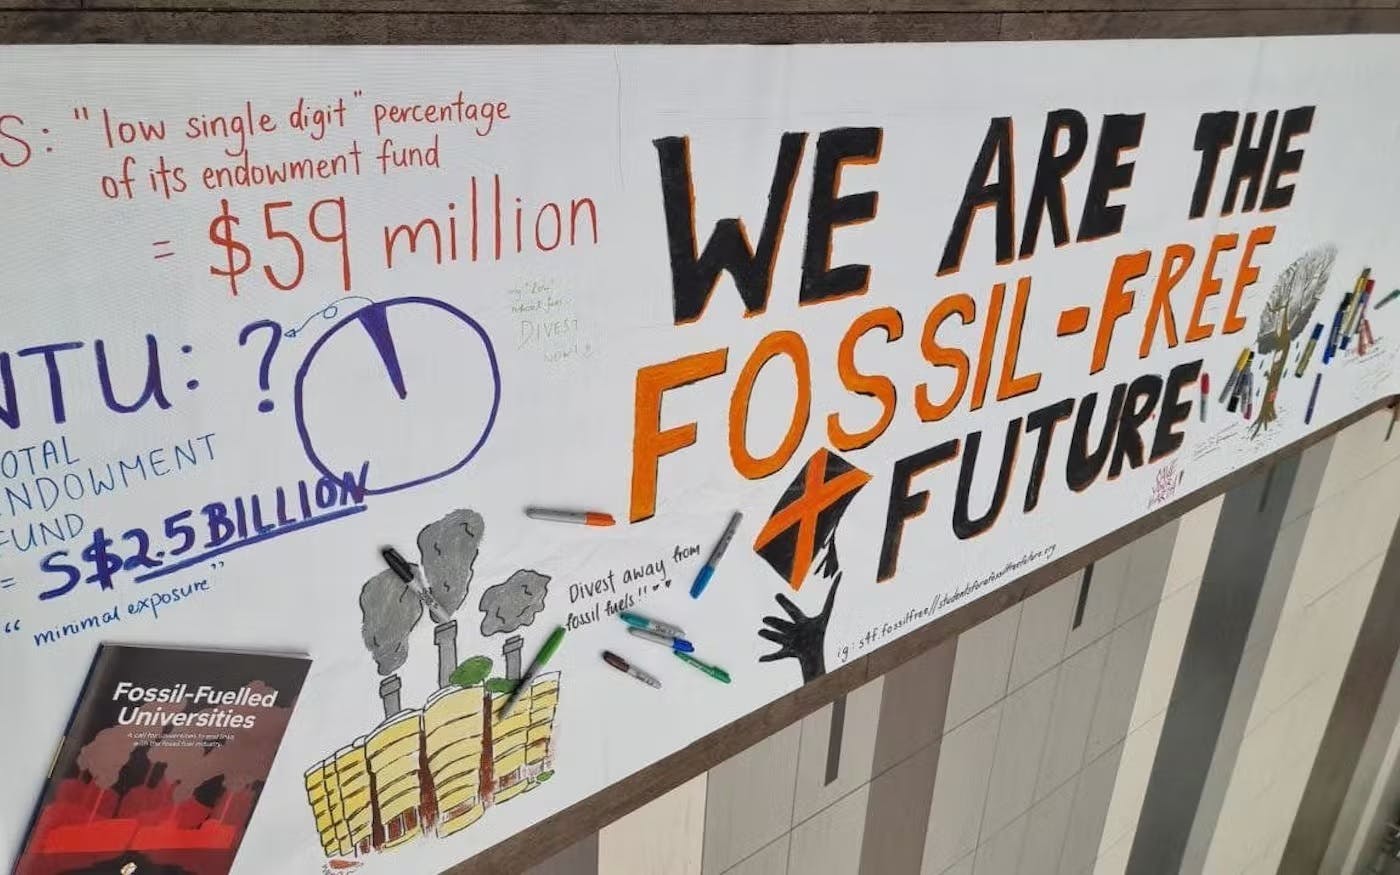 S: "low single digit" percentage
of its endowment fund
= $59 million
NTU: ?
OTAL
ENDOWMENT
FUND
= S$2.5 BILLION
"minimal exposure"
DIVEST
NOW!
WE ARE THE
FOSSIL-FREE
FUTURE
SAVE
YOUR
EARTH!
Divest away from
fossil fuels!!
ig: s4f.fossilfree//studentsforafossilfreefuture.org
Fossil-Fuelled
Universities
A call for universities to end links
with the fossil fuel industry